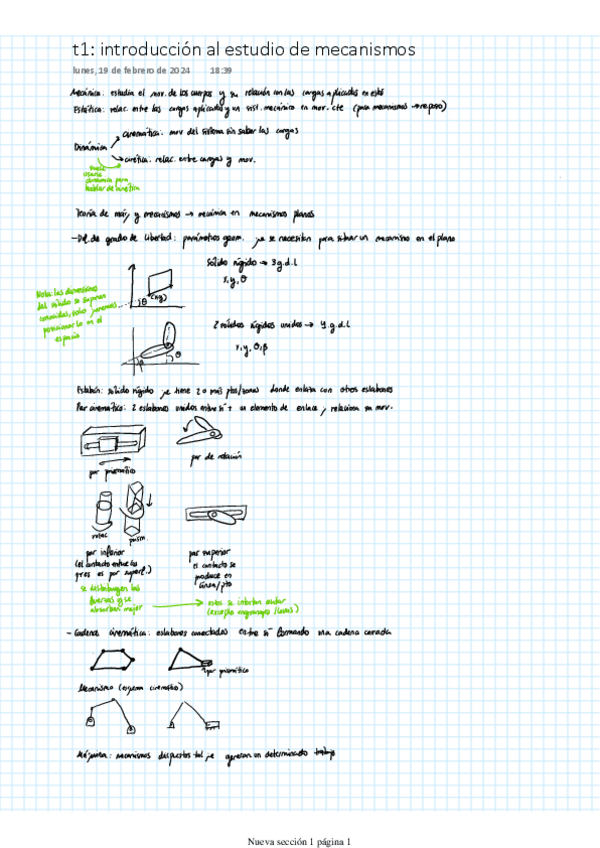 t1: introducción al estudio de mecanismos
lunes, 19 de febrero de 2024 18:39
Mecánica: estudia el mov. de los cuerpos y su relación con las cargas aplicadas en estos
Estática: relac. entre las cargas aplicadas y un sist. mecánico en mov. cte (para mecanismos → reposo)
cinemática: mov del sistema sin saber las cargas
Dinámica
cinética: relac. entre cargas y mov.
suele
usarse
dinámica para
hablar de cinética
Teoría de máq y mecanismos → mecánica en mecanismos planos
- Def. de grados de libertad: parámetros geom. que se necesitan para situar un mecanismo en el plano
Sólido rígido → 3 g.d.l
x, y, θ
Nota: las dimensiones
del sólido se suponen
conocidas, solo queremos
posicionarlo en el
espacio
θ (x,y)
2 sólidos rígidos unidos → 4 g.d.l
x, y, θ, β
β θ
Eslabón: sólido rígido que tiene 2 o más ptos/zonas donde enlaza con otros eslabones
Par cinemático: 2 eslabones unidos entre sí + un elemento de enlace, relaciona su mov.
par prismático
par de rotación
rotac. prism.
par inferior
(el contacto entre los
pares es por superf.)
par superior
el contacto se
produce en
línea/pto
se distribuyen las
fuerzas y se
absorben mejor
estos se intentan evitar
(excepto engranajes/levas)
- Cadena cinemática: eslabones conectados entre sí formando una cadena cerrada
par prismático
Mecanismo (esquema cinemático)
Máquina: mecanismos dispuestos tal que generan un determinado trabajo
Nueva sección 1 página 1